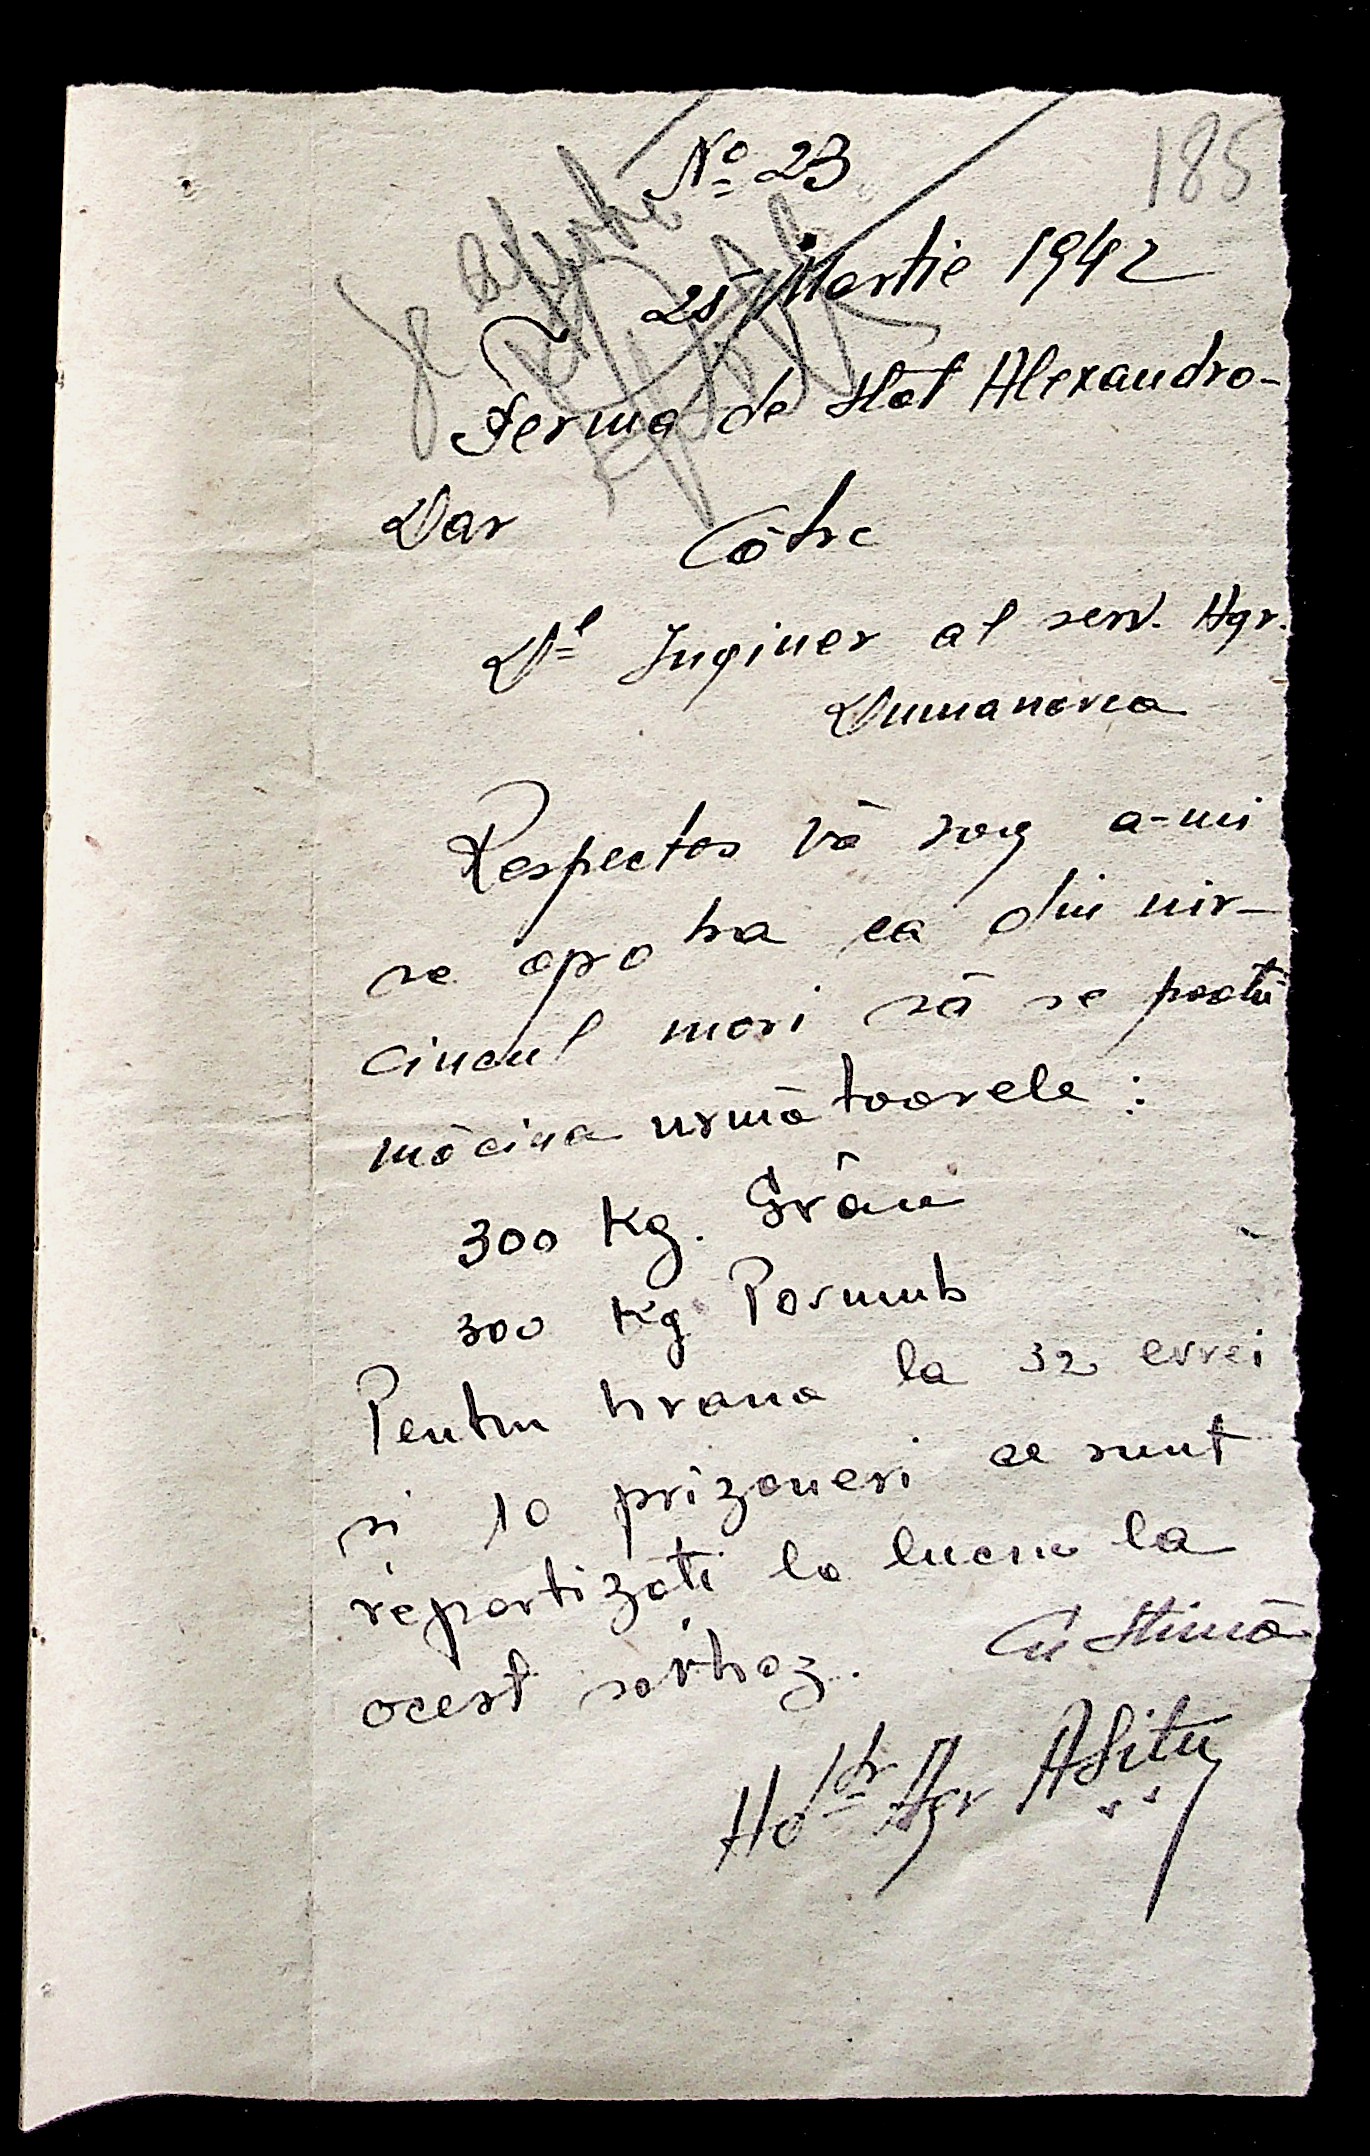 185
No 23
25 Martie 1942
Ferma de Stat Alexandro-
Dar
Către
Dl Inginer al serv. Agr.
Dumanovca
Respectos vă rog a-mi
se aproba ca din nis-
cincul mori să se poată
măcina următoarele :
300 Kg. Grâu
300 Kg. Porumb
Pentru hrana la 32 evrei
si 10 prizoneri ce sunt
repartizati la lucru la
acest sovhoz. Cu Stimă
Agr